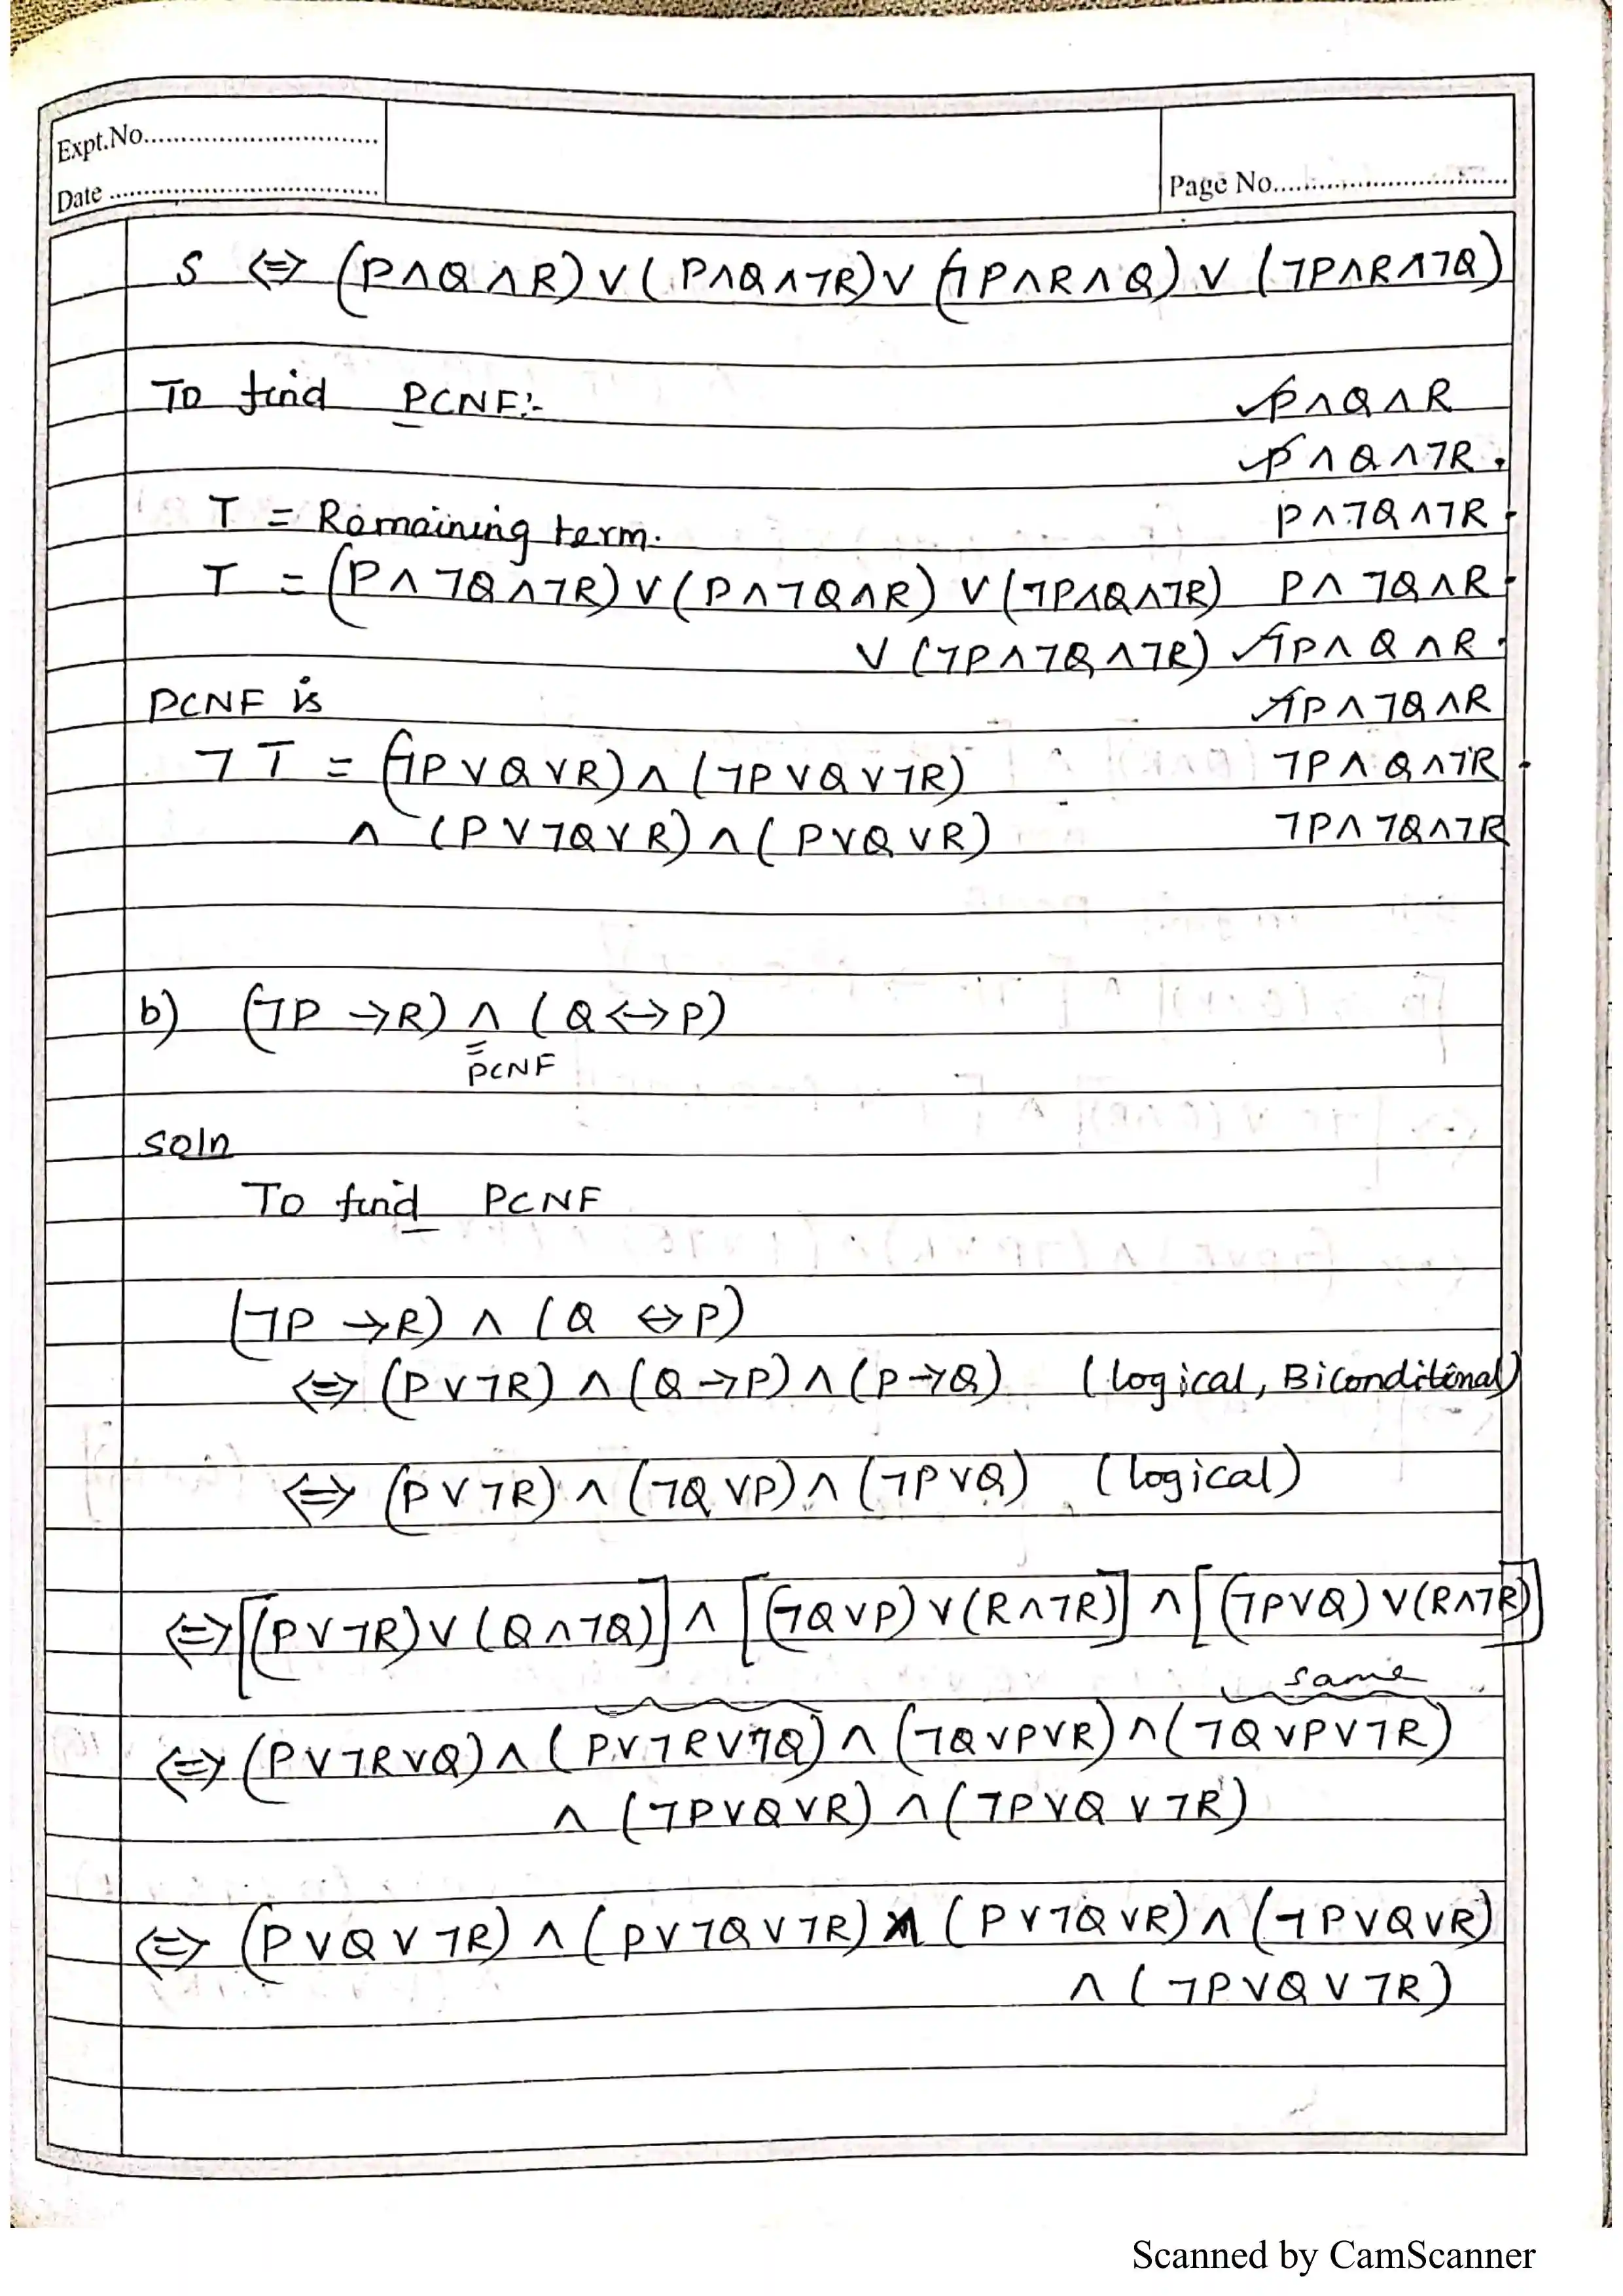 Expt.No..............................
Date ..................................
Page No..............................
S ⇔ (P∧Q∧R)∨(P∧Q∧¬R)∨(¬P∧R∧Q)∨(¬P∧R∧¬Q)
To find PCNF:-
✓P∧Q∧R
✓P∧Q∧¬R.
T = Remaining term.
P∧¬Q∧¬R
T = (P∧¬Q∧¬R)∨(P∧¬Q∧R)∨(¬P∧Q∧¬R)
P∧¬Q∧R
∨(¬P∧¬Q∧¬R)
✓¬P∧Q∧R
PCNF is
✓¬P∧¬Q∧R
¬T = (¬P∨Q∨R)∧(¬P∨Q∨¬R)
¬P∧Q∧¬R
∧(P∨¬Q∨R)∧(P∨Q∨R)
¬P∧¬Q∧¬R
b) (¬P→R)∧(Q↔P)
PCNF
Soln
To find PCNF
(¬P→R)∧(Q⇔P)
⇔(P∨¬R)∧(Q→P)∧(P→Q) (logical, Biconditional)
⇔(P∨¬R)∧(¬Q∨P)∧(¬P∨Q) (logical)
⇔[(P∨¬R)∨(Q∧¬Q)]∧[(¬Q∨P)∨(R∧¬R)]∧[(¬P∨Q)∨(R∧¬R)]
same
⇔(P∨¬R∨Q)∧(P∨¬R∨¬Q)∧(¬Q∨P∨R)∧(¬Q∨P∨¬R)
∧(¬P∨Q∨R)∧(¬P∨Q∨¬R)
⇔(P∨Q∨¬R)∧(P∨¬Q∨¬R)∧(P∨¬Q∨R)∧(¬P∨Q∨R)
∧(¬P∨Q∨¬R)
Scanned by CamScanner